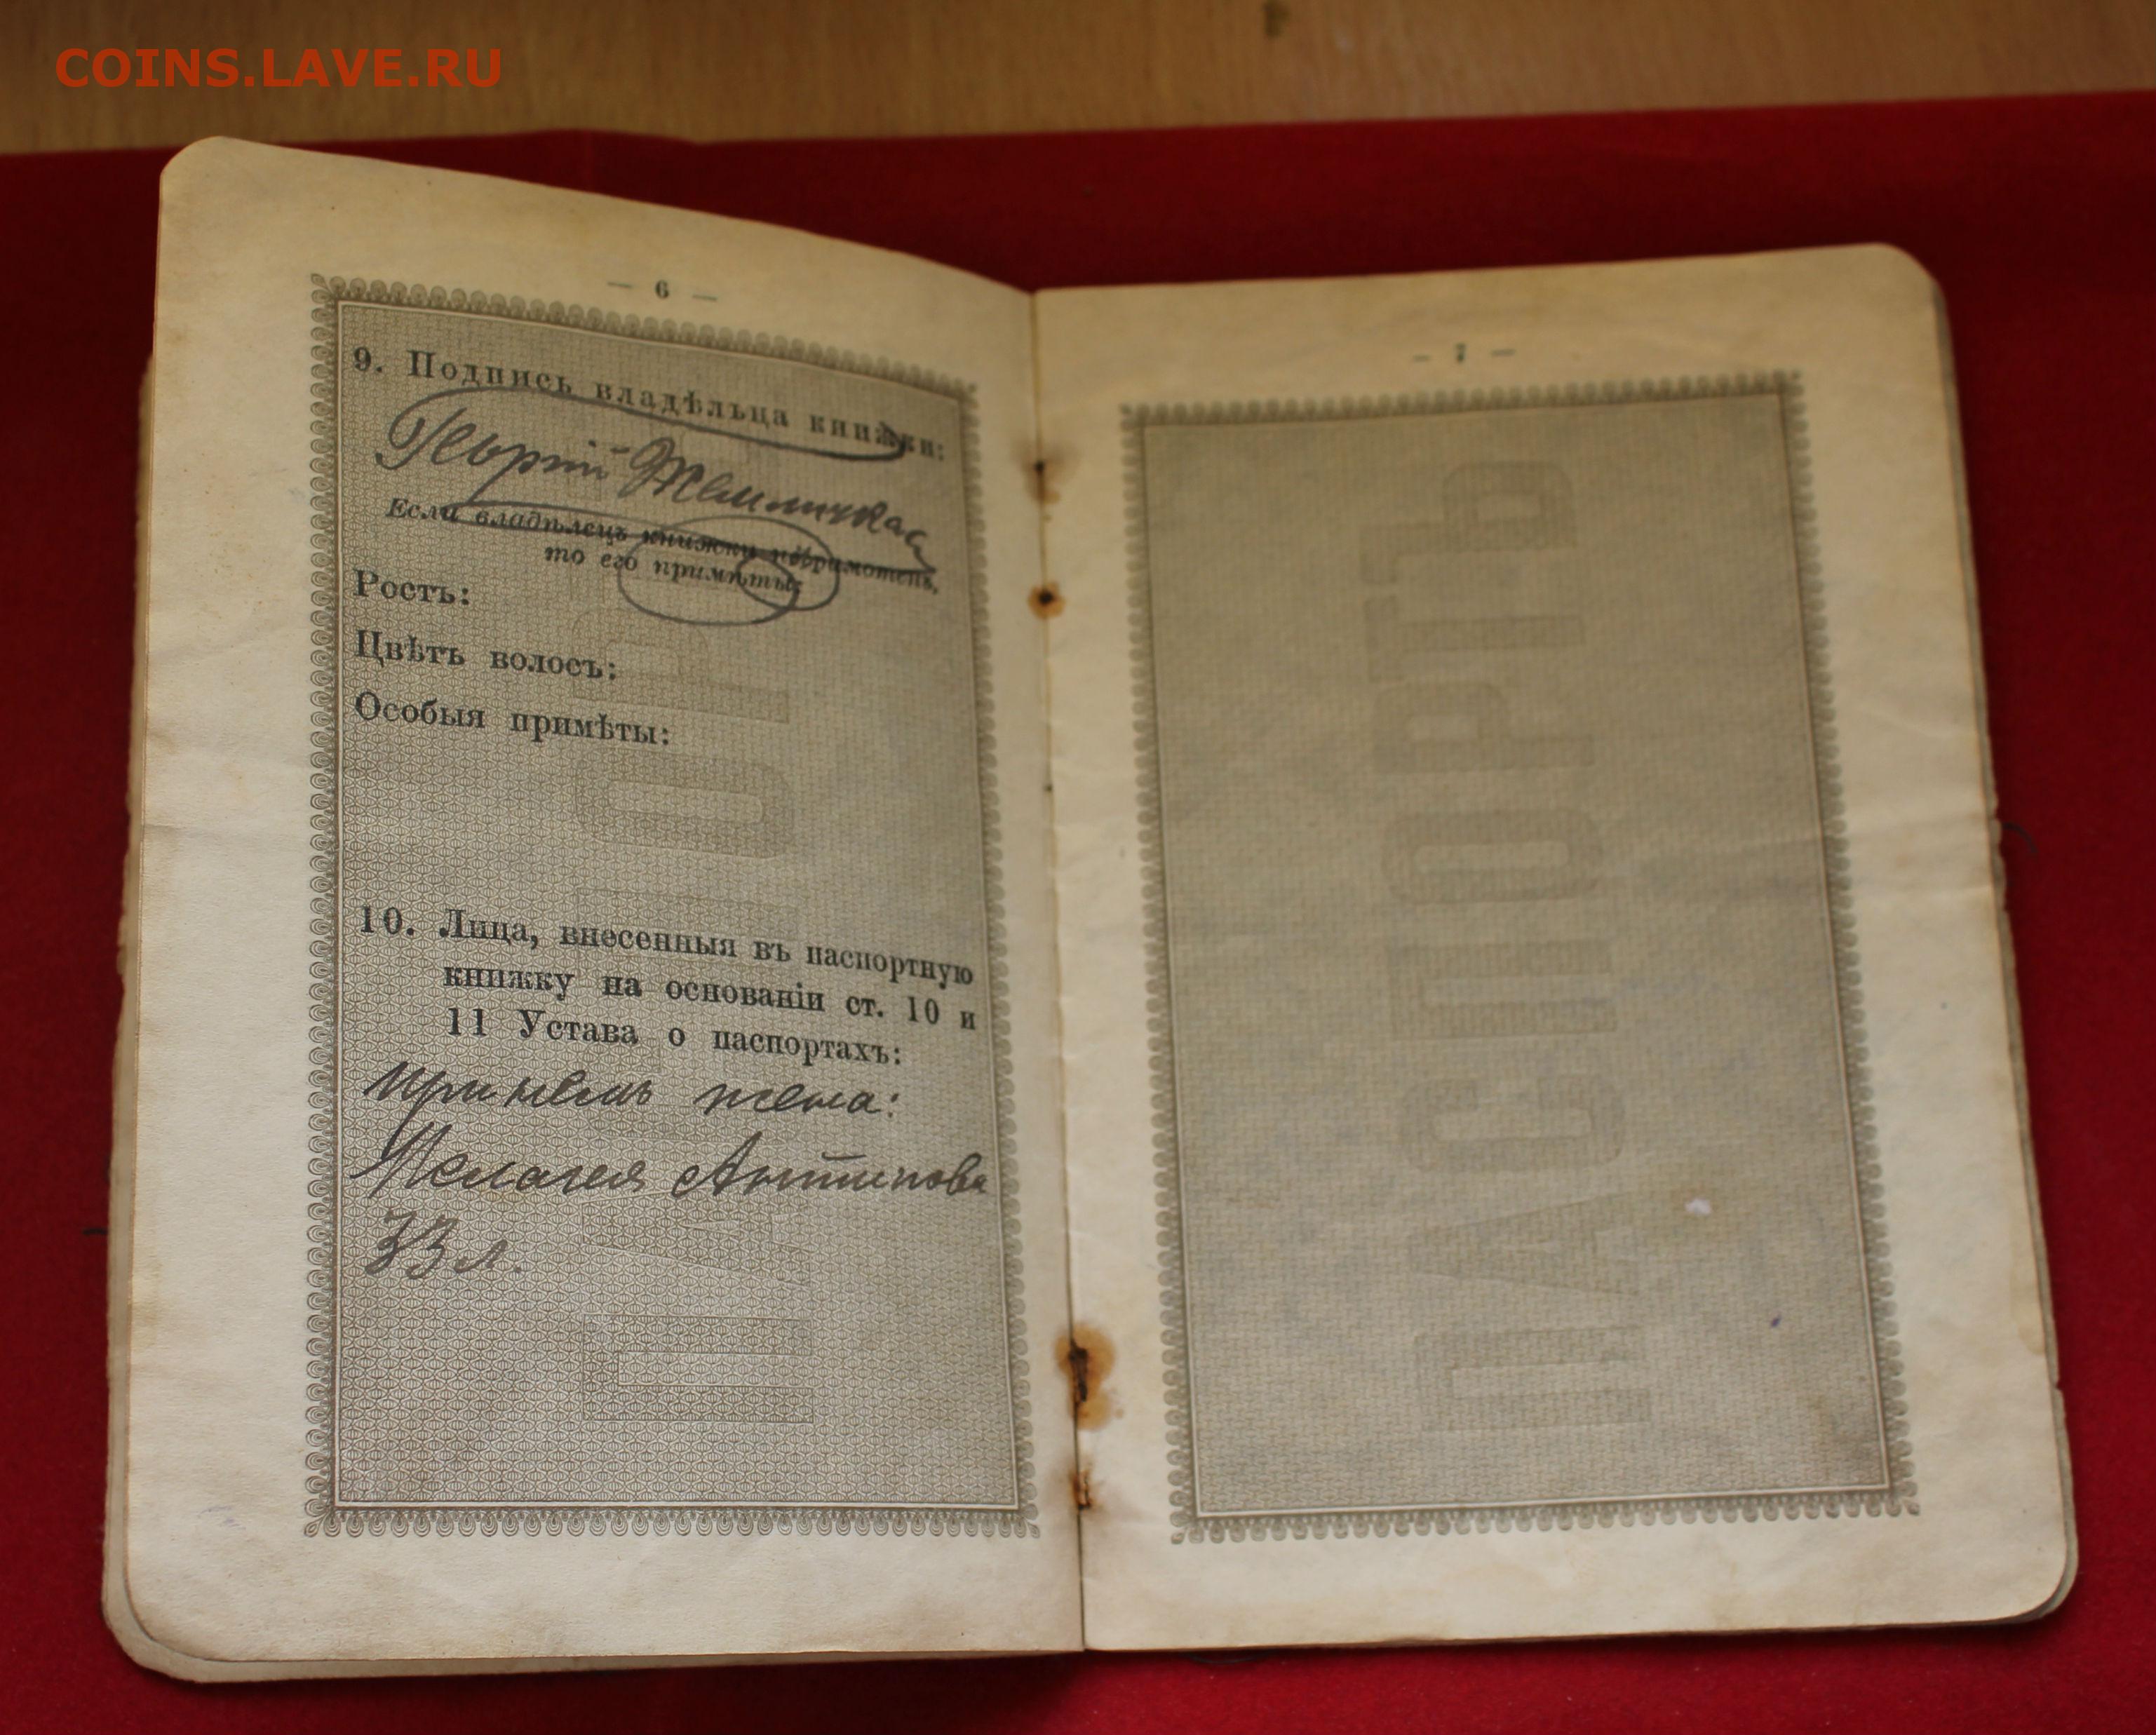 COINS.LAVE.RU
— 6 —
9. Подпись владѣльца книжки:
Георгій
Если владѣлецъ книжки неграмотенъ,
то его примѣты:
Ростъ:
Цвѣтъ волосъ:
Особыя примѣты:
10. Лица, внесенныя въ паспортную
книжку на основаніи ст. 10 и
11 Устава о паспортахъ:
при немъ жена:
Пелагея Антипова
33 л.
— 7 —
ПАСПОРТЪ